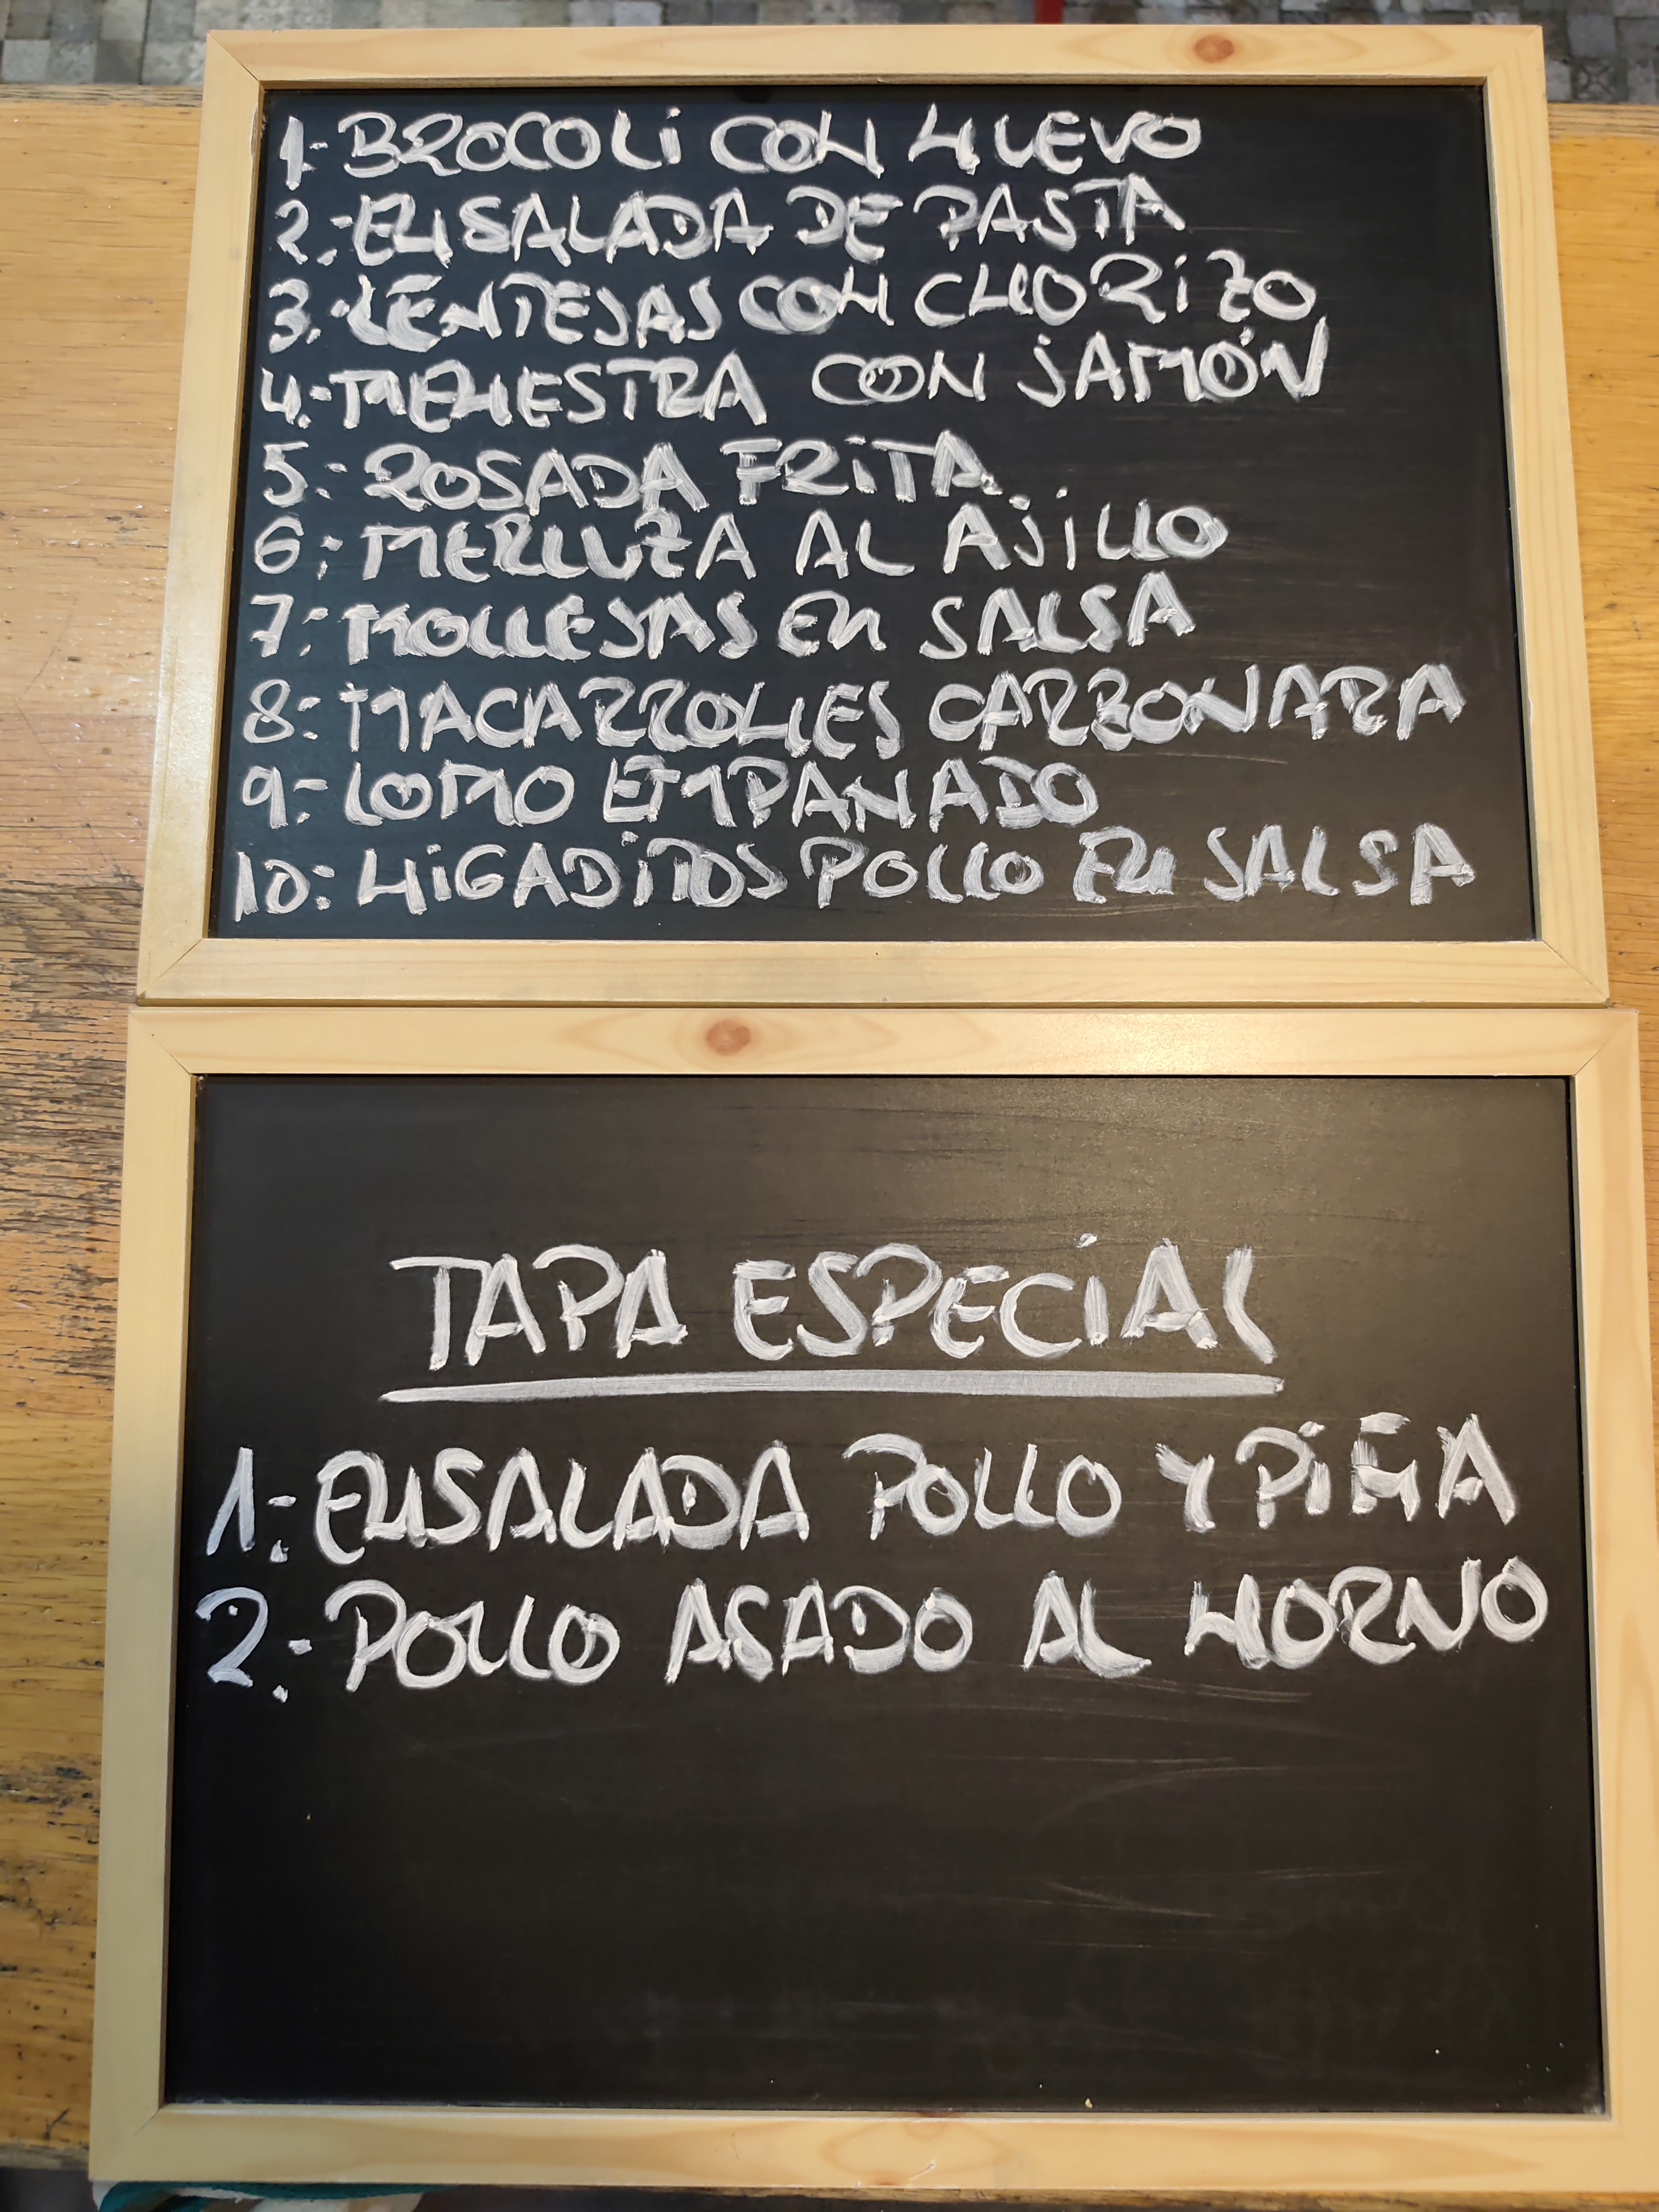 1- BROCOLI CON HUEVO
2.- ENSALADA DE PASTA
3.- LENTEJAS CON CHORIZO
4.- MENESTRA CON JAMÓN
5.- ROSADA FRITA
6.- MERLUZA AL AJILLO
7.- MOLLEJAS EN SALSA
8.- MACARRONES CARBONARA
9.- LOMO EMPANADO
10.- HIGADITOS POLLO EN SALSA
TAPA ESPECIAL
1.- ENSALADA POLLO Y PIÑA
2.- POLLO ASADO AL HORNO